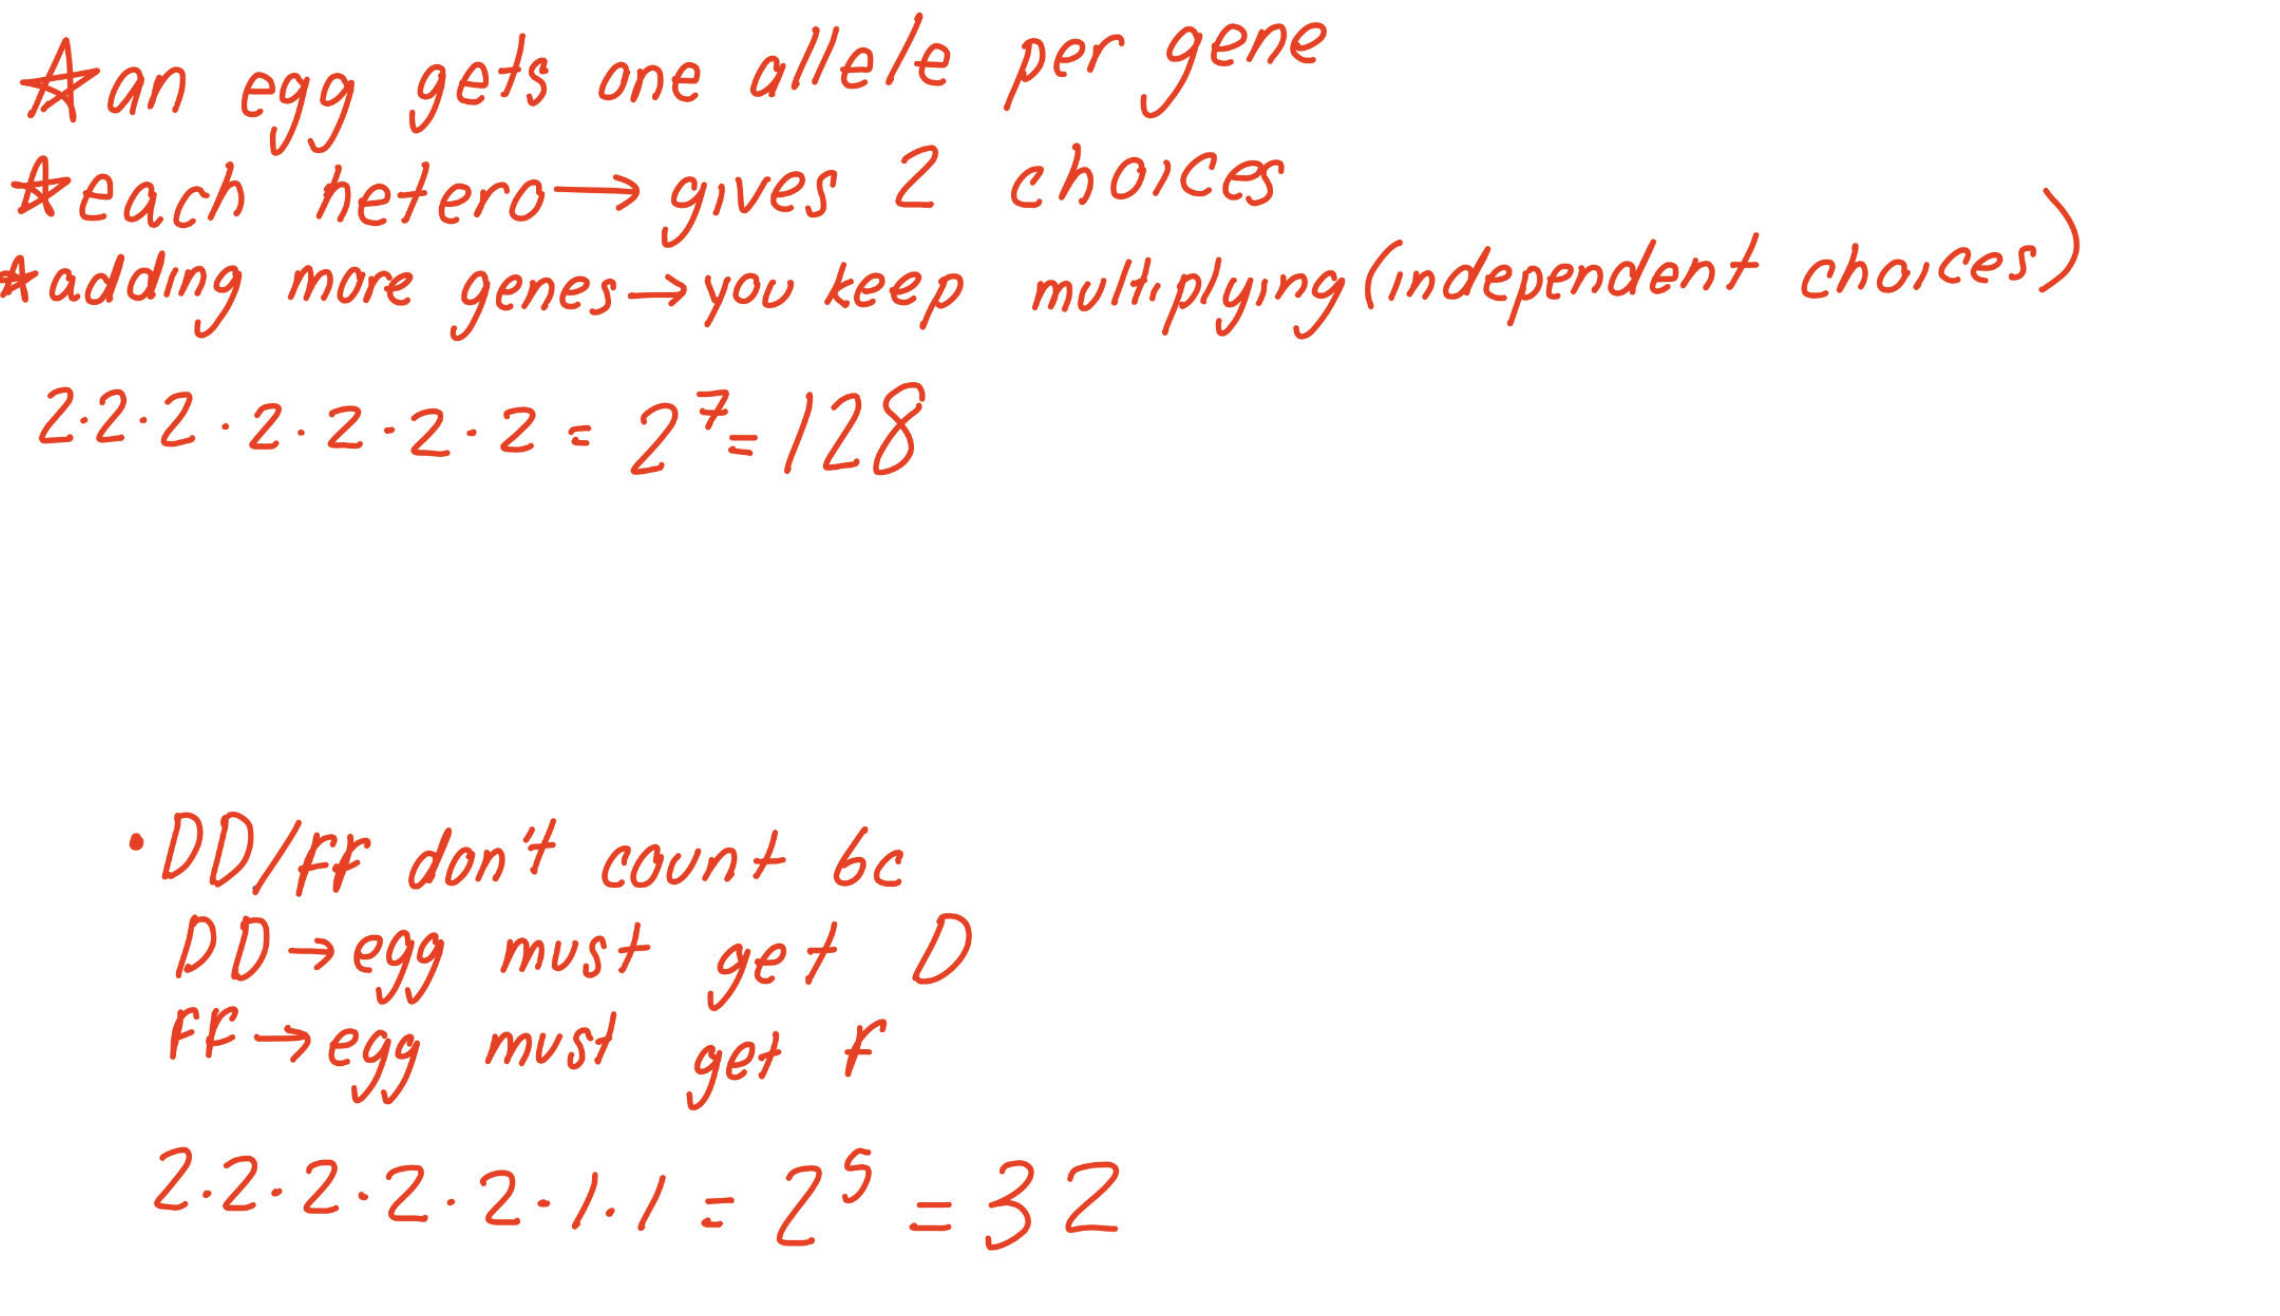 ☆an egg gets one allele per gene
☆each hetero→gives 2 choices
☆adding more genes→you keep multiplying(independent choices)
2·2·2·2·2·2·2=2⁷=128
•DD/FF don't count bc
DD→egg must get D
FF→egg must get F
2·2·2·2·2·1·1=2⁵=32